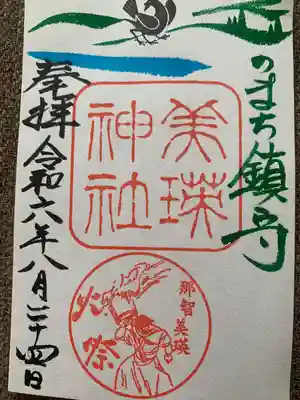 丘のまち鎮守
美瑛
神社
奉拝 令和六年八月二十四日
那智美瑛
火祭